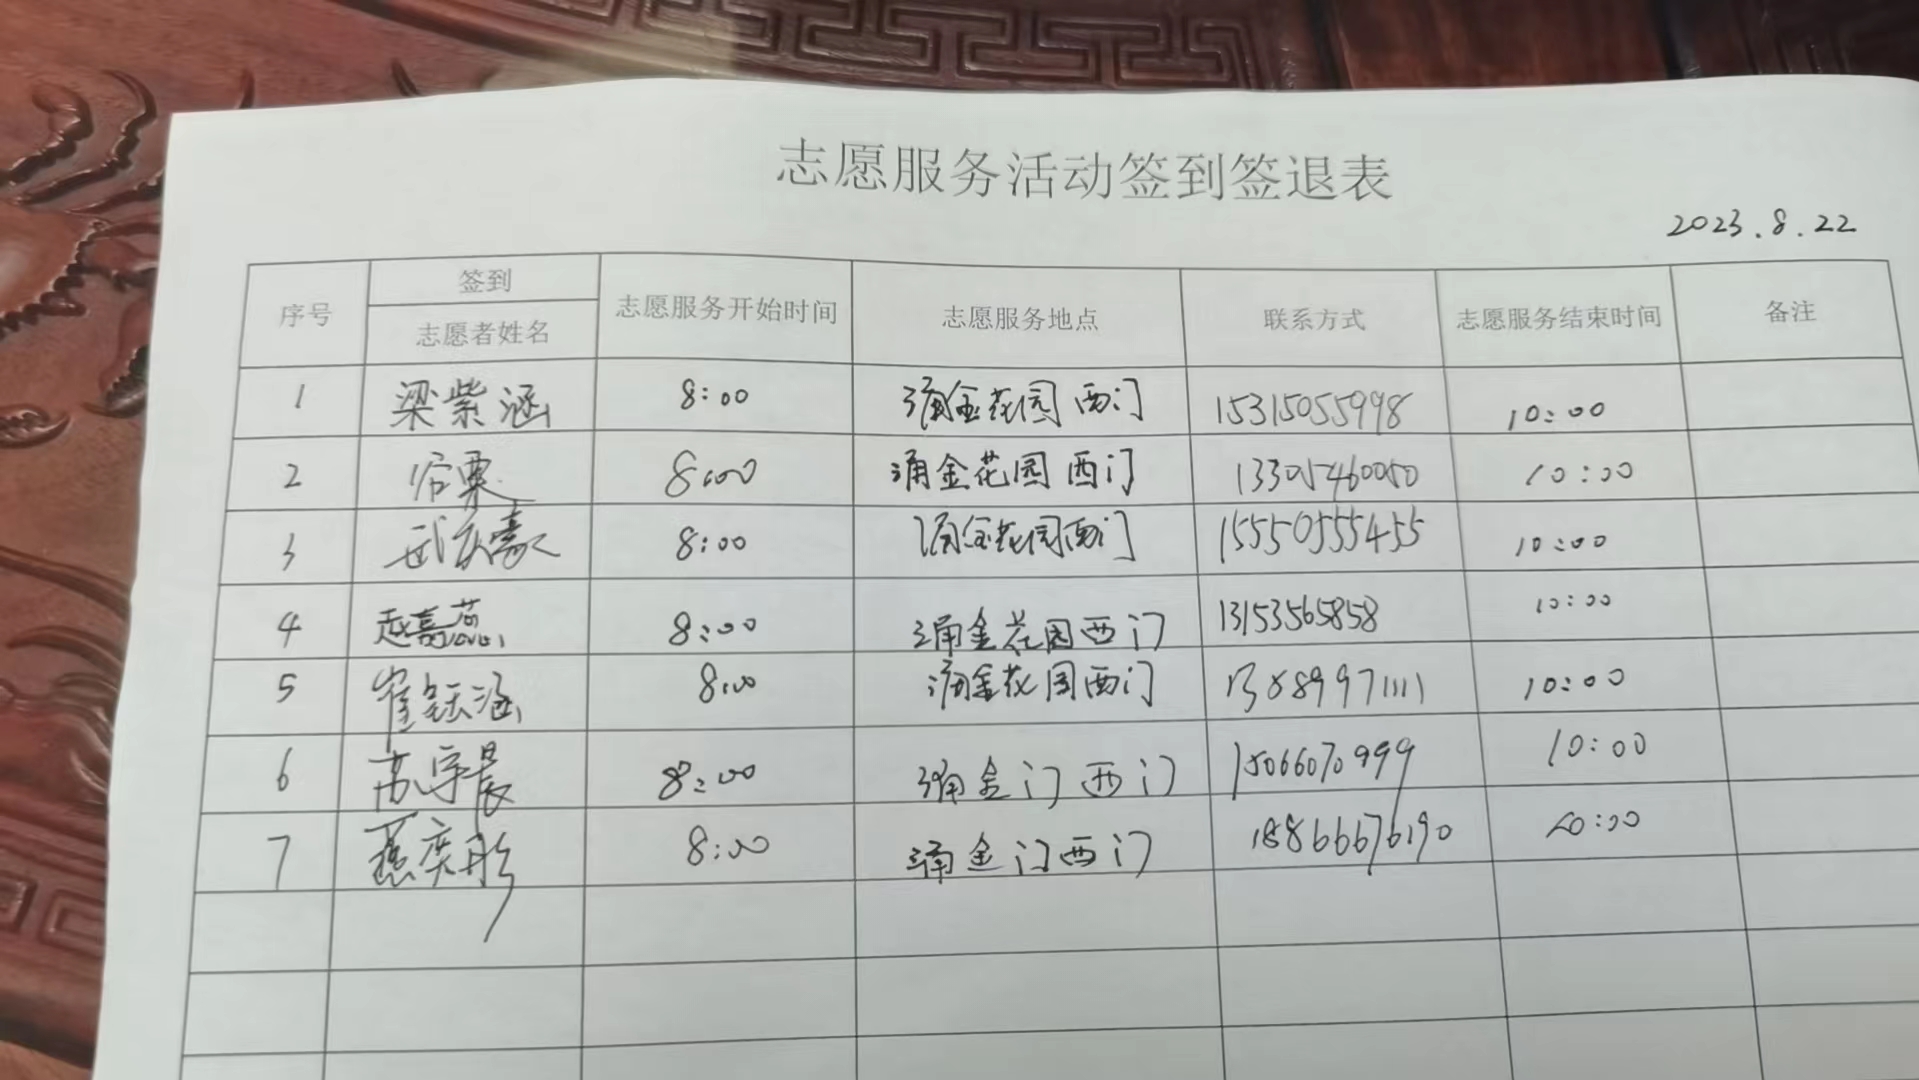 志愿服务活动签到签退表
2023.8.22
序号 签到 志愿服务开始时间 志愿服务地点 联系方式 志愿服务结束时间 备注
志愿者姓名
1 梁紫涵 8:00 涌金花园西门 15315055998 10:00
2 8:00 涌金花园西门 13305460050 10:00
3 8:00 涌金花园西门 15550555455 10:00
4 赵嘉 8:00 涌金花园西门 13153565858 10:00
5 崔钰涵 8:00 涌金花园西门 13589971111 10:00
6 苏宇晨 8:00 涌金门西门 15066070999 10:00
7 燕奕彤 8:00 涌金门西门 18866676190 10:00